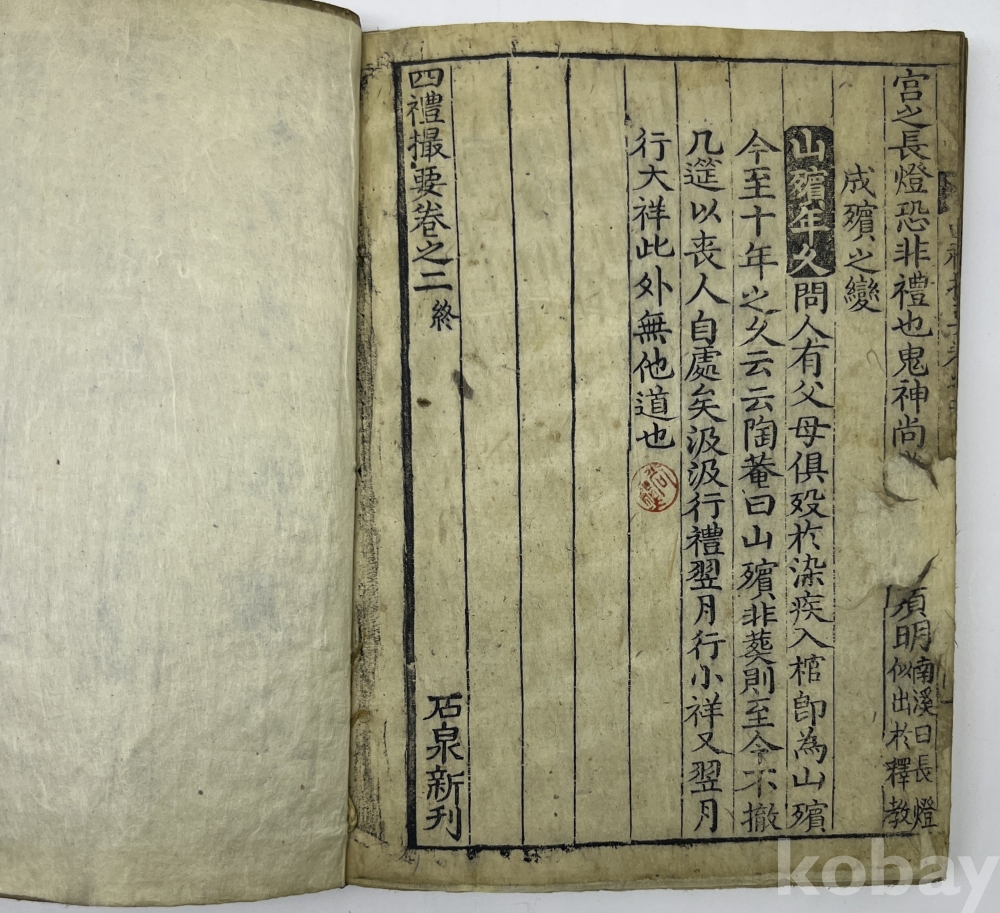 宮之長燈恐非禮也鬼神尚
須明南溪曰長燈似出於釋教
成殯之變
山殯年久問人有父母俱歿於染疾入棺卽為山殯
今至十年之久云云陶菴曰山殯非葬則至今不撤
几筵以喪人自處矣汲汲行禮翌月行小祥又翌月
行大祥此外無他道也
四禮撮要卷之二終
石泉新刊
kobay